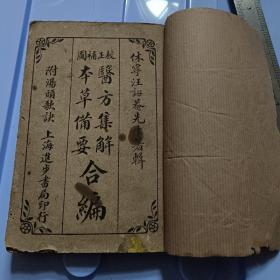 休寧汪訒菴先生著輯
圖補正校
醫方集解
本草備要
合編
附湯頭歌訣
上海進步書局印行